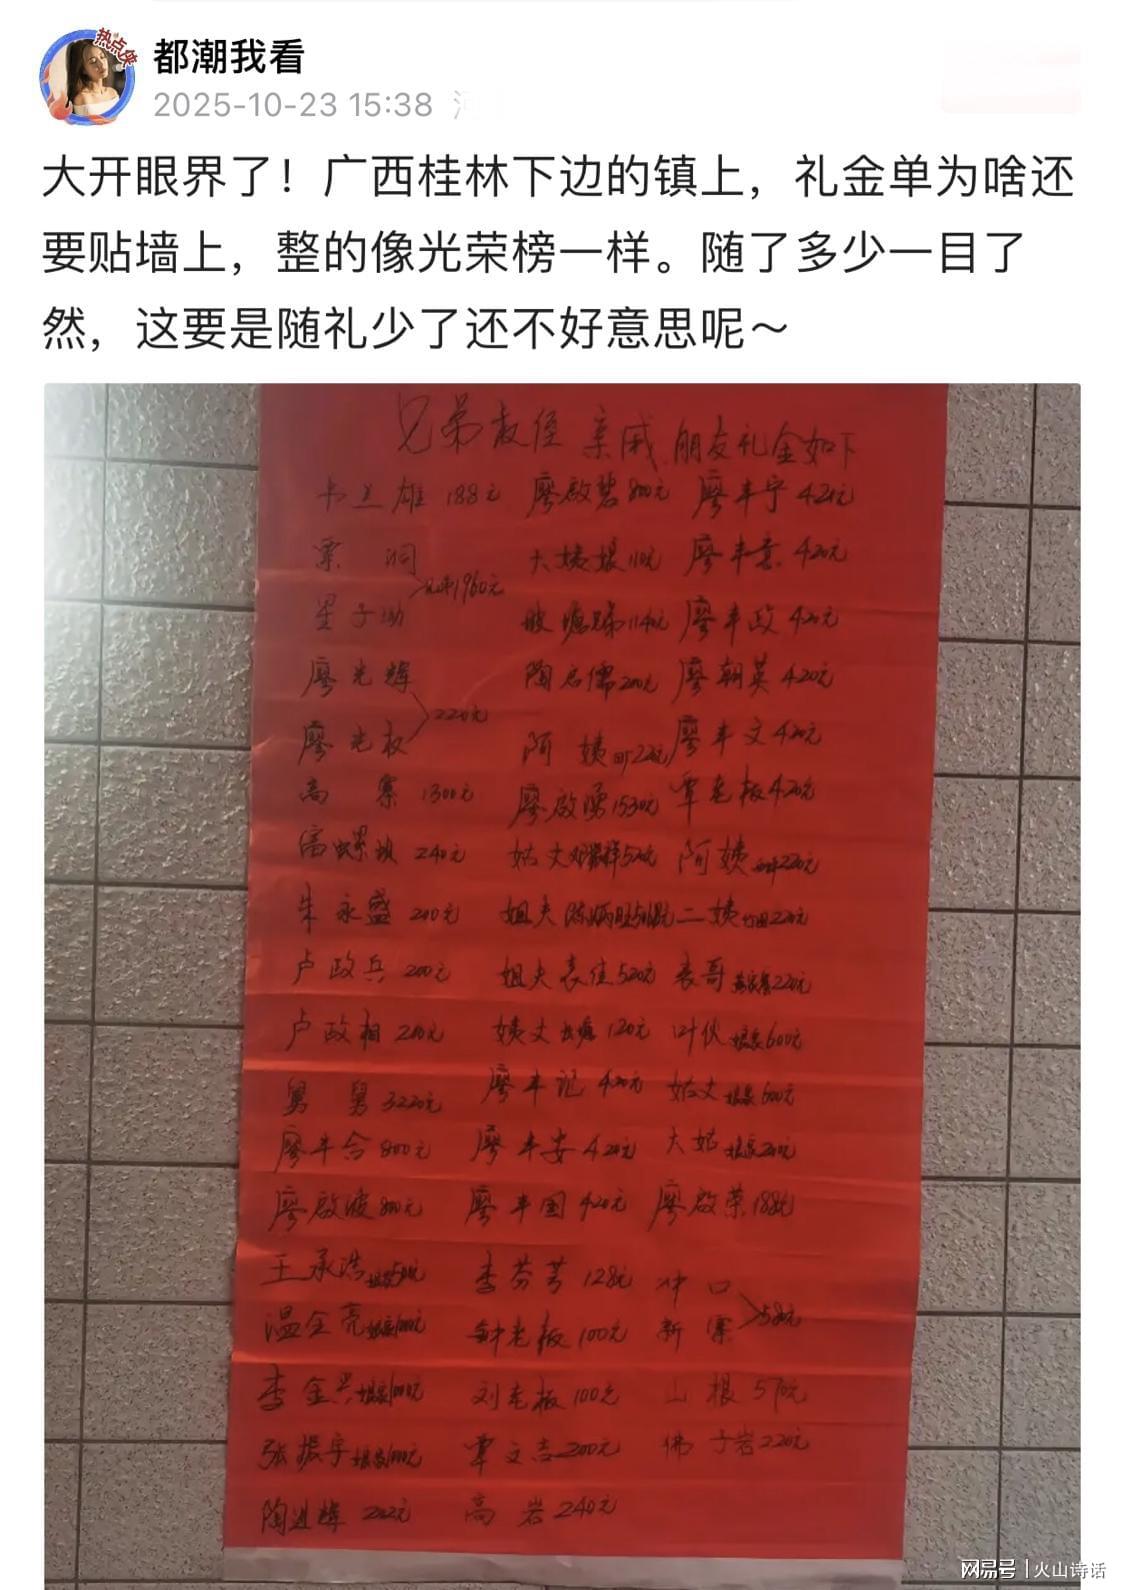 热点侠
都潮我看
2025-10-23 15:38 河
大开眼界了！广西桂林下边的镇上，礼金单为啥还
要贴墙上，整的像光荣榜一样。随了多少一目了
然，这要是随礼少了还不好意思呢～
兄弟表侄 亲戚 朋友礼金如下
雄 188元 廖啟碧 800元 廖丰宁 420元
粟 洞 大姨娘 110元 廖丰意 420元
1960元
星子坳 1140元 廖丰政 420元
廖光辉 陶启儒 200元 廖朝英 420元
2220元
廖光权 阿姨 廖丰文 420元
高寨 1300元 廖啟勇 1530元 覃老板 420元
240元 姑丈 阿姨 220元
朱永盛 200元 姐夫 二姨 220元
卢政兵 200元 姐夫 表侄 520元 表哥 220元
卢政相 200元 姨丈 120元 叶伙 娘家 600元
舅舅 3220元 廖丰记 420元 姑丈 娘家 600元
廖丰合 800元 廖丰安 420元 大姑 娘家 200元
廖啟波 800元 廖丰国 420元 廖啟荣 188元
王承浩 娘家 李芬芳 128元 冲口
580元
温全亮 娘家 100元 钟老板 100元 新寨
李金兴 娘家 100元 刘老板 100元 山根 570元
张振宇 娘家 100元 覃文吉 200元 佛子岩 220元
陶进辉 202元 高岩 240元
网易号 | 火山诗话